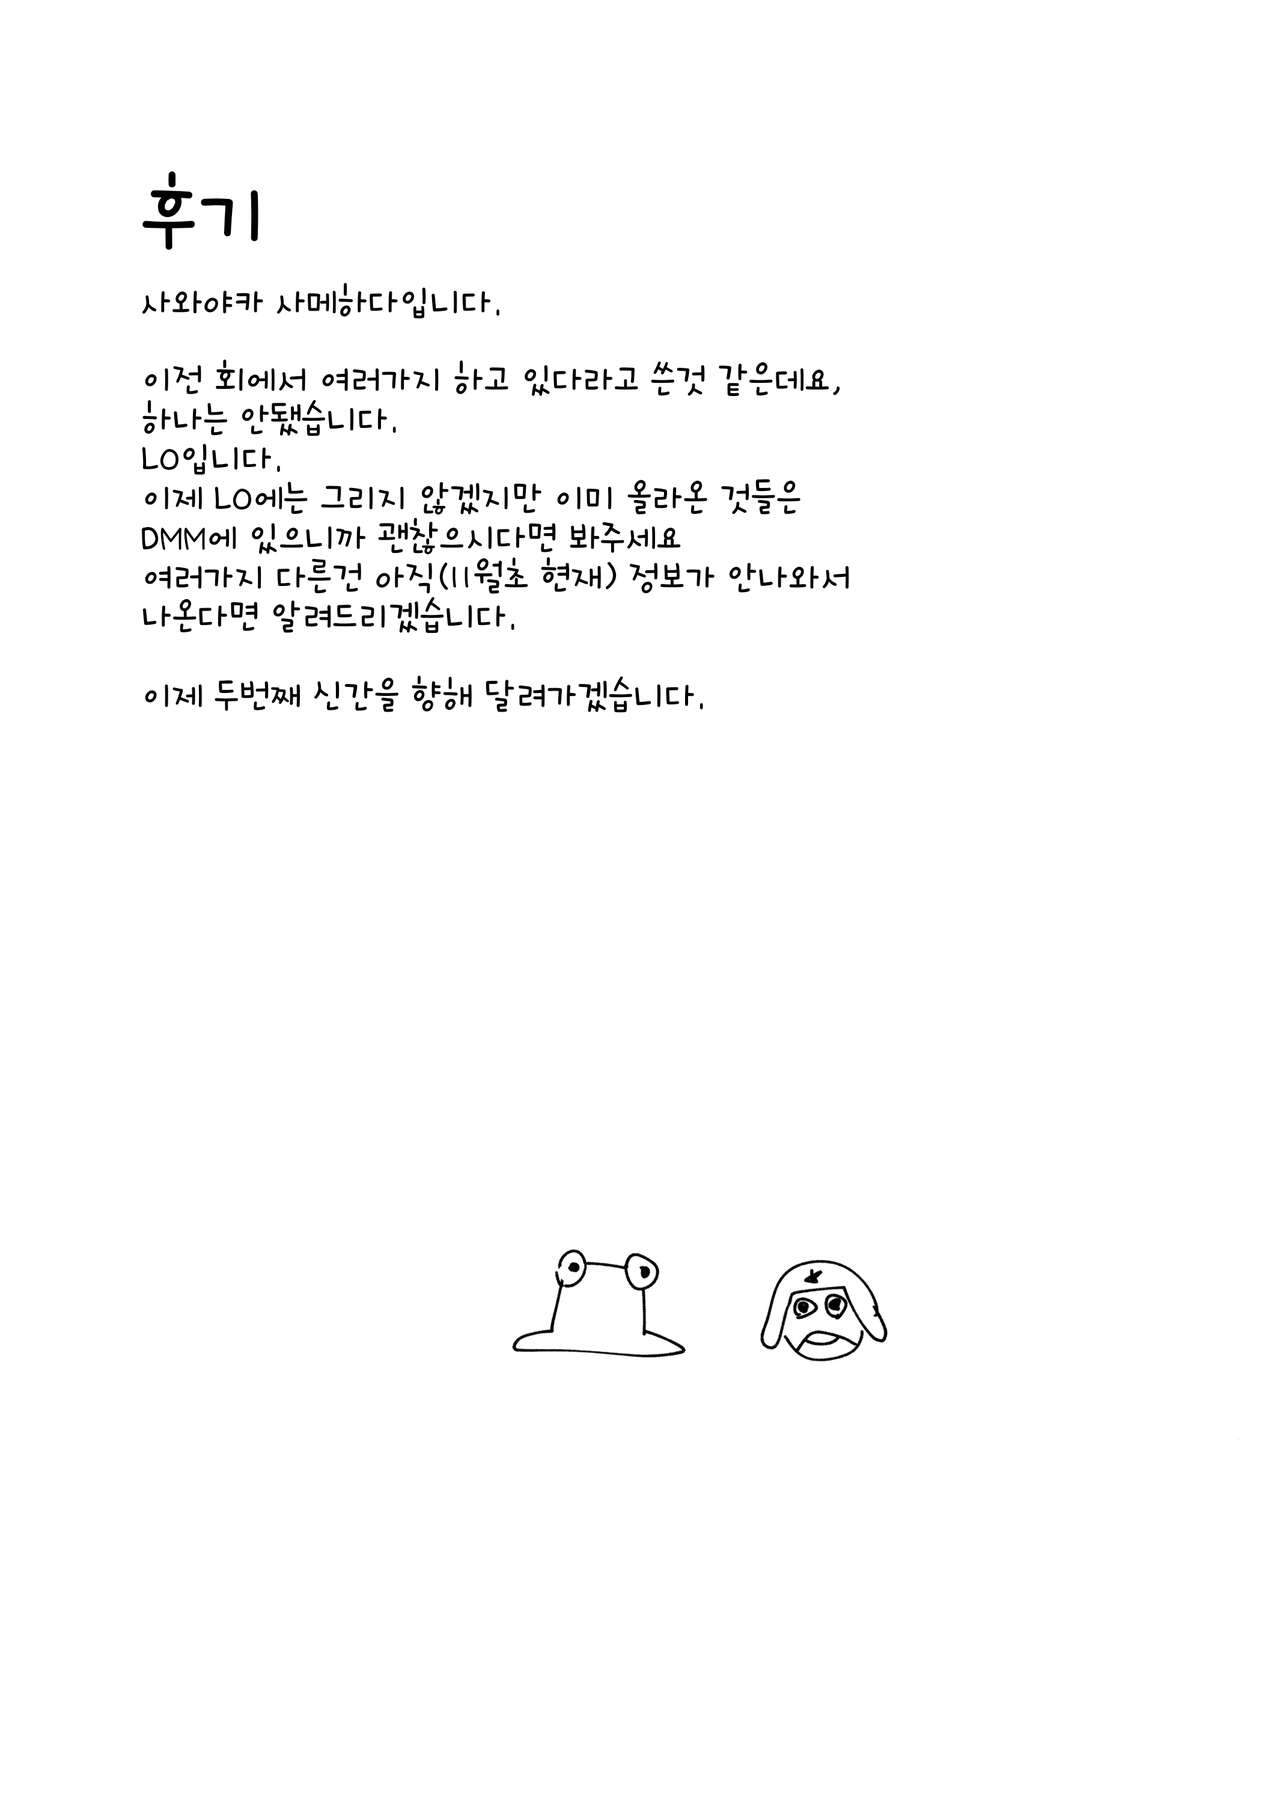 후기
사와야카 사메하다입니다.
이전 회에서 여러가지 하고 있다라고 쓴것 같은데요,
하나는 안됐습니다.
LO입니다.
이제 LO에는 그리지 않겠지만 이미 올라온 것들은
DMM에 있으니까 괜찮으시다면 봐주세요
여러가지 다른건 아직(11월초 현재) 정보가 안나와서
나온다면 알려드리겠습니다.
이제 두번째 신간을 향해 달려가겠습니다.